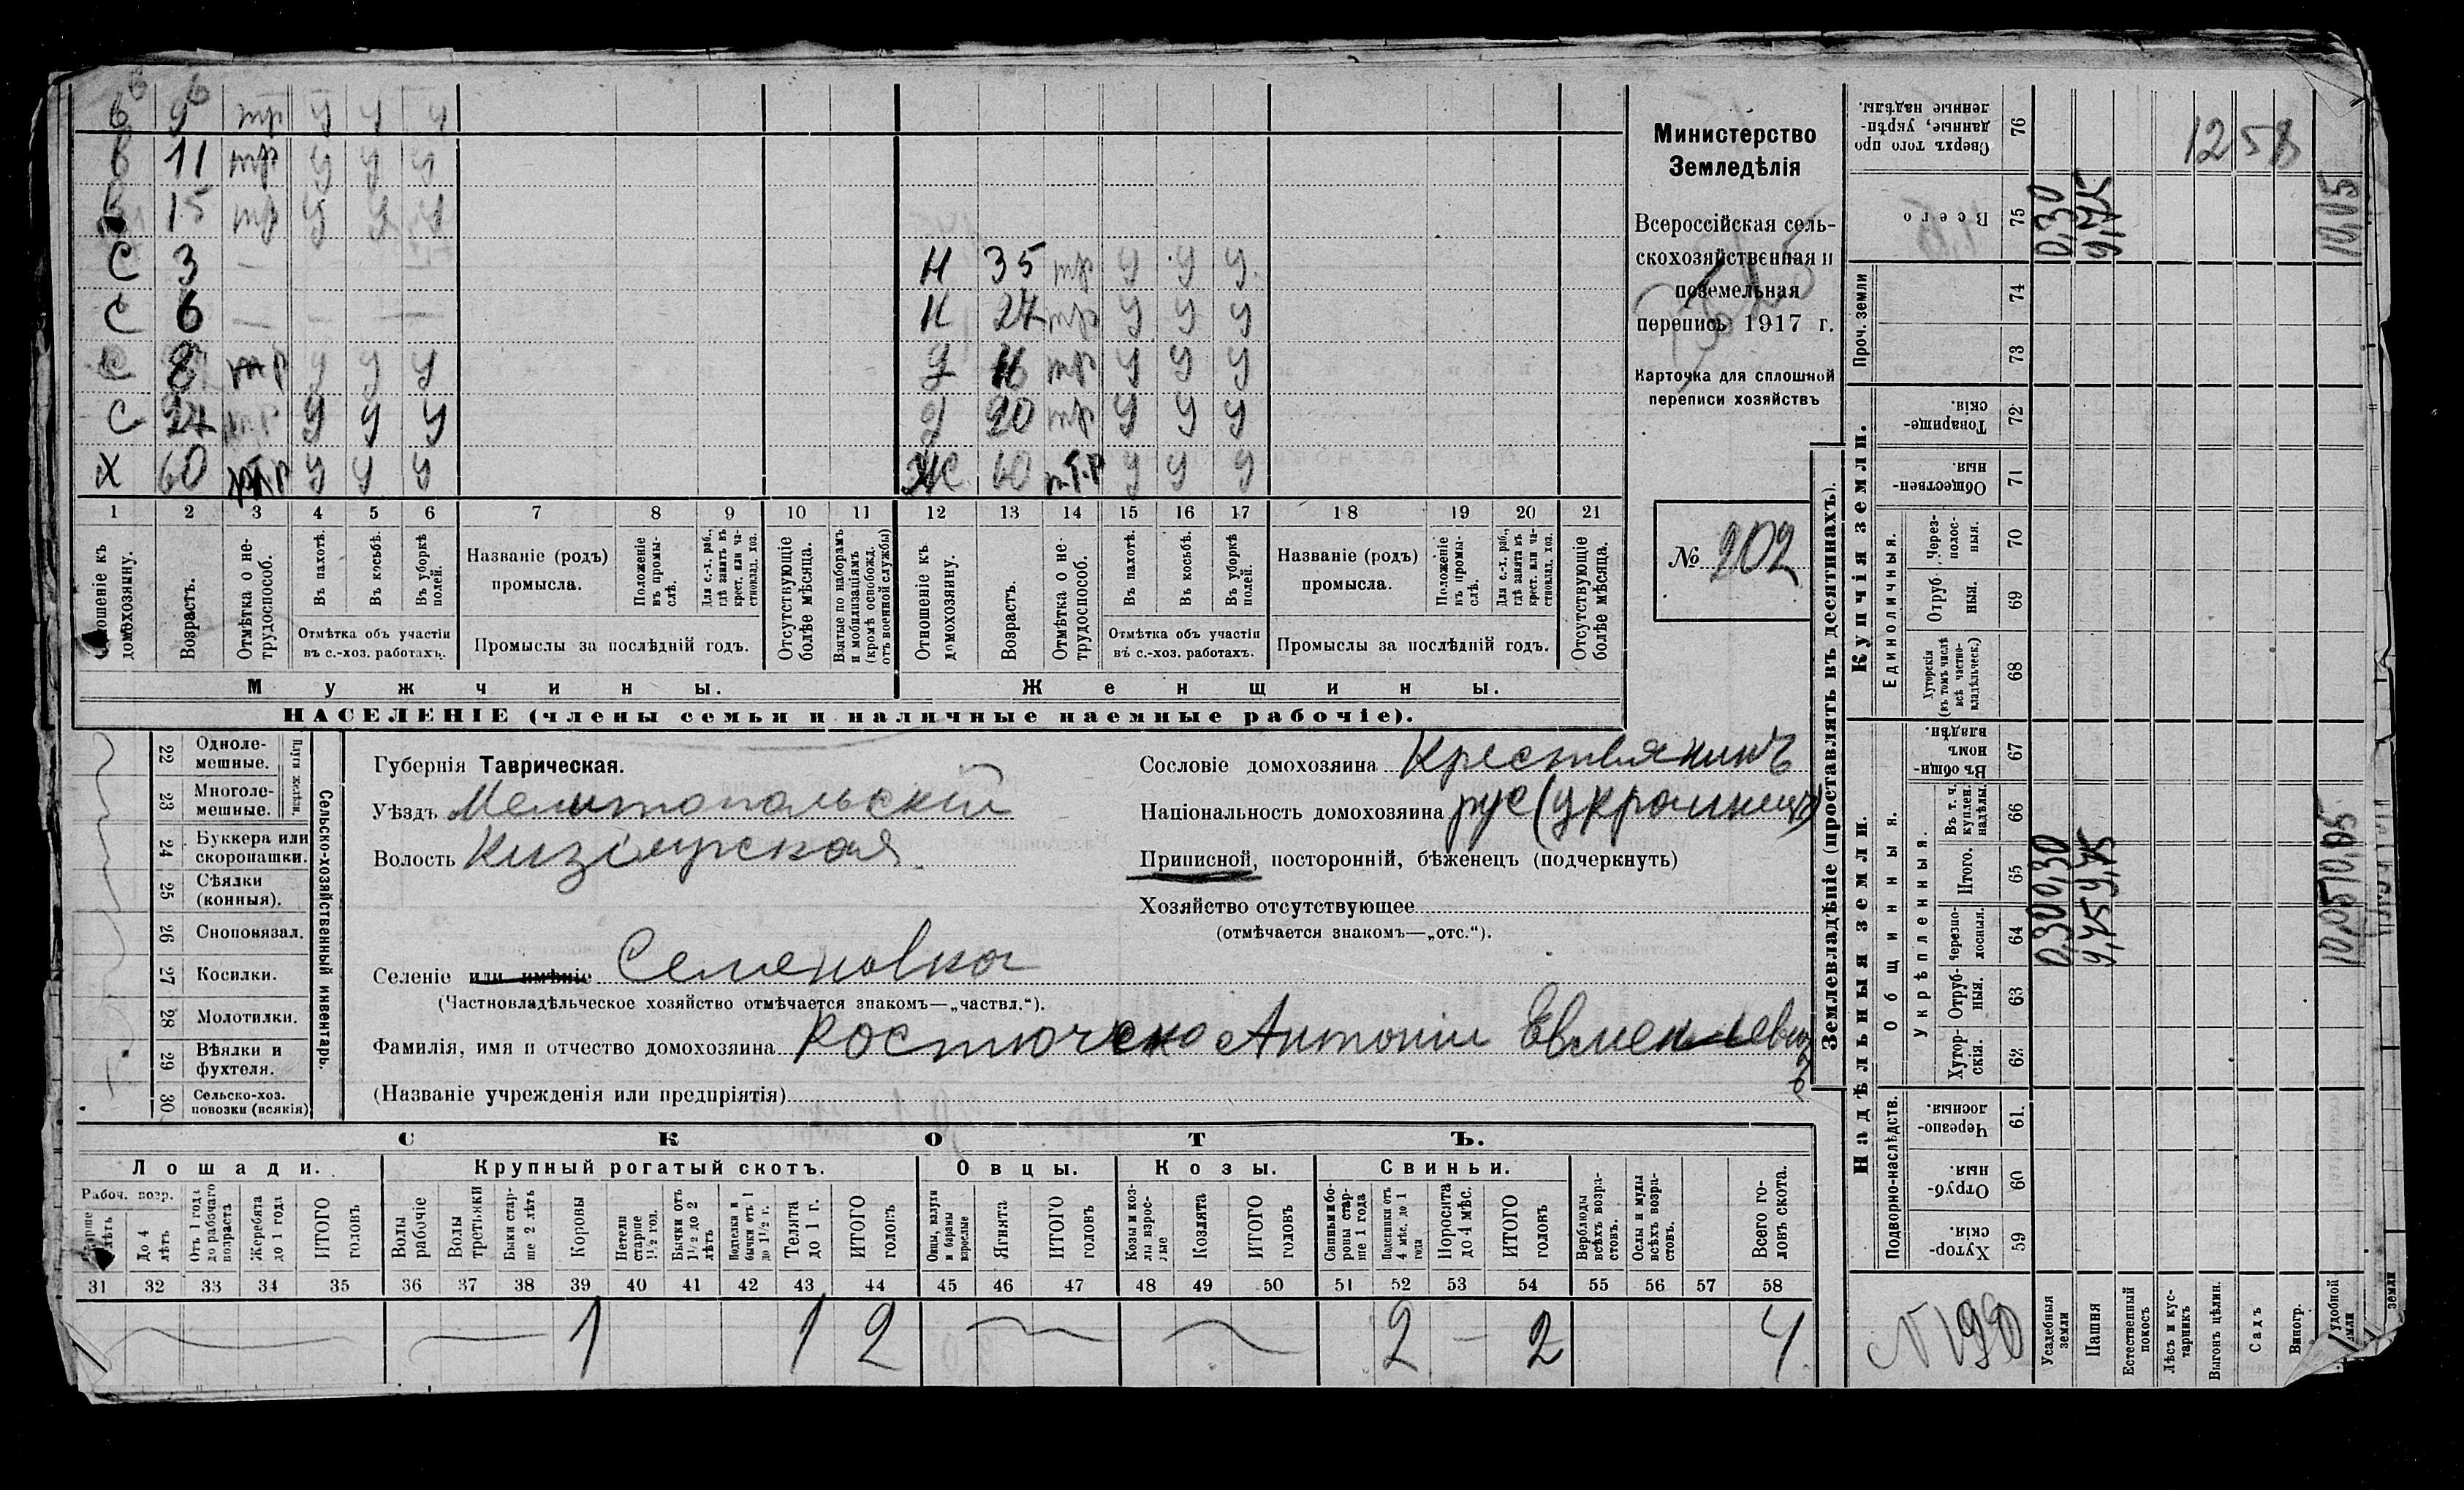 в 9 тр у у у
в 11 тр у у у
в 15 тр у у у
С 3 —
С 6 — — —
С 8 тр у у у
С 24 тр у у у
Х 60 тр у у у
Н 35 тр у у у
Н 24 тр у у у
д тр у у у
д 20 тр у у у
Ж 60 тр у у у
1 2 3 4 5 6 7 8 9 10 11 12 13 14 15 16 17 18 19 20 21
Отношеніе къ домохозяину.
Возрастъ.
Отмѣтка о не-
трудоспособ.
Въ пахотѣ.
Въ косьбѣ.
Въ уборкѣ
полей.
Отмѣтка объ участіи
въ с.-хоз. работахъ.
Названіе (родъ)
промысла.
Положеніе
въ промы-
слѣ.
Для с.-х. раб.,
гдѣ занятъ въ
крест. или ча-
стновлад. хоз.
Промыслы за послѣдній годъ.
Отсутствующіе
болѣе мѣсяца.
Взятые по наборамъ
и мобилизаціямъ
(кромѣ освобожд.
отъ военной службы)
Отношеніе къ
домохозяину.
Возрастъ.
Отмѣтка о не-
трудоспособ.
Въ пахотѣ.
Въ косьбѣ.
Въ уборкѣ
полей.
Отмѣтка объ участіи
въ с.-хоз. работахъ.
Названіе (родъ)
промысла.
Положеніе
въ промы-
слѣ.
Для с.-х. раб.,
гдѣ занята въ
крест. или ча-
стновлад. хоз.
Промыслы за послѣдній годъ.
Отсутствующіе
болѣе мѣсяца.
Мужчины.
Женщины.
НАСЕЛЕНІЕ (члены семьи и наличные наемные рабочіе).
Министерство
Земледѣлія
Всероссійская сель-
скохозяйственная и
поземельная
перепись 1917 г.
Карточка для сплошной
переписи хозяйствъ
№ 202
22 Одноле-
мешные.
23 Многоле-
мешные.
24 Буккера или
скоропашки.
25 Сѣялки
(конныя).
26 Сноповязал.
27 Косилки.
28 Молотилки.
29 Вѣялки и
фухтеля.
30 Сельско-хоз.
повозки (всякія)
Сельско-хозяйственный инвентарь.
Губернія Таврическая.
Уѣздъ Мелитопольскій
Волость Кизіярская
Селеніе или имѣніе Семеновка
(Частновладѣльческое хозяйство отмѣчается знакомъ—„частвл.“).
Фамилія, имя и отчество домохозяина Костюченко Антоній Евменьевичъ
(Названіе учрежденія или предпріятія)
Сословіе домохозяина Крестьянинъ
Національность домохозяина рус (украинецъ)
Приписной, посторонній, бѣженецъ (подчеркнуть)
Хозяйство отсутствующее
(отмѣчается знакомъ—„отс.“).
СКОТЪ.
Лошади. Крупный рогатый скотъ. Овцы. Козы. Свиньи.
Рабоч. возр.
лѣтъ
До 4
лѣтъ
Отъ 1 года
до рабочаго
возраста
Жеребята
до 1 года
ИТОГО
головъ
Волы
рабочіе
Волы
третьяки
Быки стар-
ше 2 лѣтъ
Коровы
Нетели
старше
1½ год.
Бычки отъ
1½ до 2
лѣтъ
Подтелки и
бычки отъ 1
до 1½ г.
Телята
до 1 г.
ИТОГО
головъ
Овцы, валухи
и бараны
взрослые
Ягнята
ИТОГО
головъ
Козы и коз-
лы взрос-
лые
Козлята
ИТОГО
головъ
Свиньи бо-
ровы стар-
ше 1 года
Подсвинки отъ
4 мѣс. до 1
года
Поросята
до 4 мѣс.
ИТОГО
головъ
Верблюды
всѣхъ возра-
стовъ.
Ослы и мулы
всѣхъ возра-
стовъ.
Всего го-
ловъ скота.
31 32 33 34 35 36 37 38 39 40 41 42 43 44 45 46 47 48 49 50 51 52 53 54 55 56 57 58
1 1 2 2 — 2 4
Землевладѣніе (проставлять въ десятинахъ).
Купчія земли.
Надѣльныя земли.
Сверхъ того про
данные, укрѣп-
ленные надѣлы.
76
1258
Всего
75
0,30
9,75
10,05
Проч. земли
74
73
Товарище-
скія.
72
Обществен-
ныя
71
Единоличныя.
Через-
полос-
ныя.
70
Отруб
ныя.
69
Хуторскія
(въ томъ числѣ
всѣ частно-
владѣльческ.)
68
Общинныя.
Въ общи-
номъ
владѣн.
67
Укрѣпленныя.
Въ т. ч.
куплен.
надѣлы.
66
Итого.
65
0,30
9,75
10,05
Черезпо-
лосныя.
64
0,30
9,75
10,05
Отруб-
ныя.
63
Хутор-
скія.
62
Подворно-наслѣдств.
Черезпо-
лосныя.
61.
Отруб-
ныя
60
Хутор-
скія.
59
N 190
Усадебныя
земли
Пашня
Естественный
покосъ
Лѣсъ и кус-
тарникъ
Выгонъ цѣлин.
Садъ
Виногр.
удобной
земли
земли